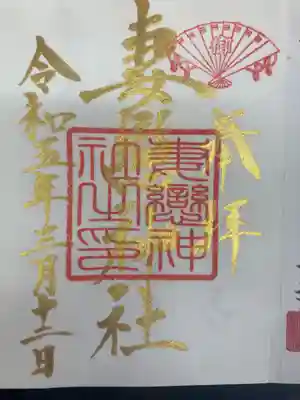 奉拝
妻戀神社
妻戀神
社之印
令和五年三月十二日